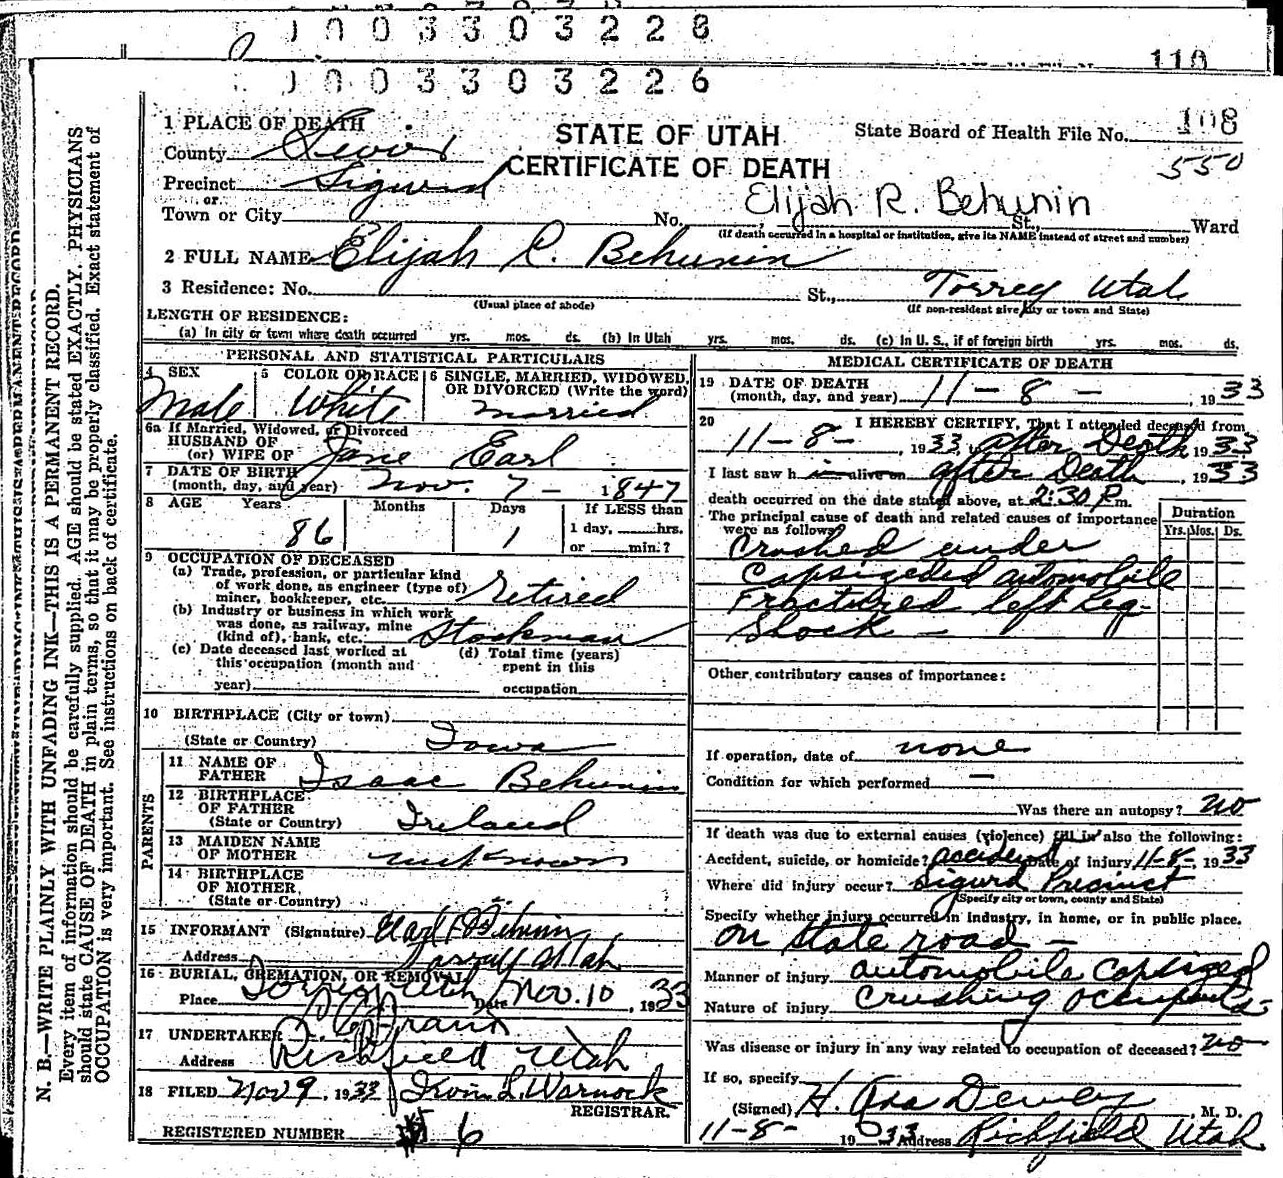 0 0 3 3 0 3 2 2 6
110
0 0 3 3 0 3 2 2 6
1 PLACE OF DEATH
STATE OF UTAH
CERTIFICATE OF DEATH
State Board of Health File No. 108
550
County Sevier
Precinct Sigurd
or
Town or City No. St., Ward
Elijah R. Behunin
(If death occurred in a hospital or institution, give its NAME instead of street and number)
2 FULL NAME Elijah R. Behunin
3 Residence: No. St., Torrey Utah
(Usual place of abode) (If non-resident give city or town and State)
LENGTH OF RESIDENCE:
(a) In city or town where death occurred yrs. mos. ds. (b) In Utah yrs. mos. ds. (c) In U. S., if of foreign birth yrs. mos. ds.
PERSONAL AND STATISTICAL PARTICULARS
4 SEX
Male
5 COLOR OR RACE
White
6 SINGLE, MARRIED, WIDOWED,
OR DIVORCED (Write the word)
married
6a If Married, Widowed, or Divorced
HUSBAND OF
(or) WIFE OF Jane Earl
7 DATE OF BIRTH
(month, day, and year) Nov. 7 - 1847
8 AGE Years Months Days If LESS than
86 1 1 day, hrs.
or min.?
9 OCCUPATION OF DECEASED
(a) Trade, profession, or particular kind
of work done, as engineer (type of)
miner, bookkeeper, etc. Retired
(b) Industry or business in which work
was done, as railway, mine
(kind of), bank, etc. Stockman
(c) Date deceased last worked at
this occupation (month and
year)
(d) Total time (years)
spent in this
occupation
10 BIRTHPLACE (City or town)
(State or Country) Iowa
PARENTS
11 NAME OF
FATHER Isaac Behunin
12 BIRTHPLACE
OF FATHER
(State or Country) Ireland
13 MAIDEN NAME
OF MOTHER unknown
14 BIRTHPLACE
OF MOTHER
(State or Country)
15 INFORMANT (Signature) Behunin
Address Utah
16 BURIAL, CREMATION, OR REMOVAL
Place Torrey Utah Date Nov. 10, 1933
17 UNDERTAKER
Address Richfield Utah
18 FILED Nov 9, 1933 Irvin L. Warnock
REGISTRAR.
REGISTERED NUMBER 6
MEDICAL CERTIFICATE OF DEATH
19 DATE OF DEATH
(month, day, and year) 11 - 8 - , 1933
20 I HEREBY CERTIFY, That I attended deceased from
11 - 8 - , 1933 after Death, 1933
I last saw h im alive on after Death, 1933
death occurred on the date stated above, at 2:30 P.m.
The principal cause of death and related causes of importance
were as follows:
Duration
Yrs. Mos. Ds.
Crushed under
Capsizeded automobile
Fractured left leg-
Shock -
Other contributory causes of importance:
If operation, date of none
Condition for which performed -
Was there an autopsy? no
If death was due to external causes (violence) fill in also the following:
Accident, suicide, or homicide? accident Date of injury 11-8-, 1933
Where did injury occur? Sigurd Precinct
(Specify city or town, county and State)
Specify whether injury occurred in industry, in home, or in public place.
on State road -
Manner of injury automobile capsized
Nature of injury Crushing occupants-
Was disease or injury in any way related to occupation of deceased? no
If so, specify
(Signed) H. Asa Dewey, M. D.
11-8- 1933 Address Richfield Utah.
N. B.—WRITE PLAINLY WITH UNFADING INK—THIS IS A PERMANENT RECORD.
Every item of information should be carefully supplied. AGE should be stated EXACTLY. PHYSICIANS
should state CAUSE OF DEATH in plain terms, so that it may be properly classified. Exact statement of
OCCUPATION is very important. See instructions on back of certificate.